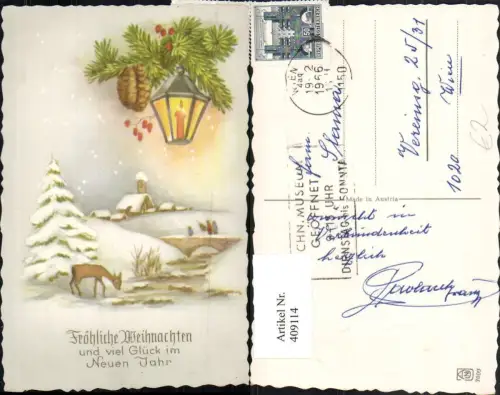 Fröhliche Weihnachten
und viel Glück im
Neuen Jahr
WIEN
1966
1150
CHN. MUSEUM
GEÖFFNET
UHR
DIENSTAG BIS SONNTA
Fam.
Vereinsg. 25/31
1020 Wien
62
Made in Austria
wünscht in
Verbundenheit
herzlich
Franz
Artikel Nr.
409114